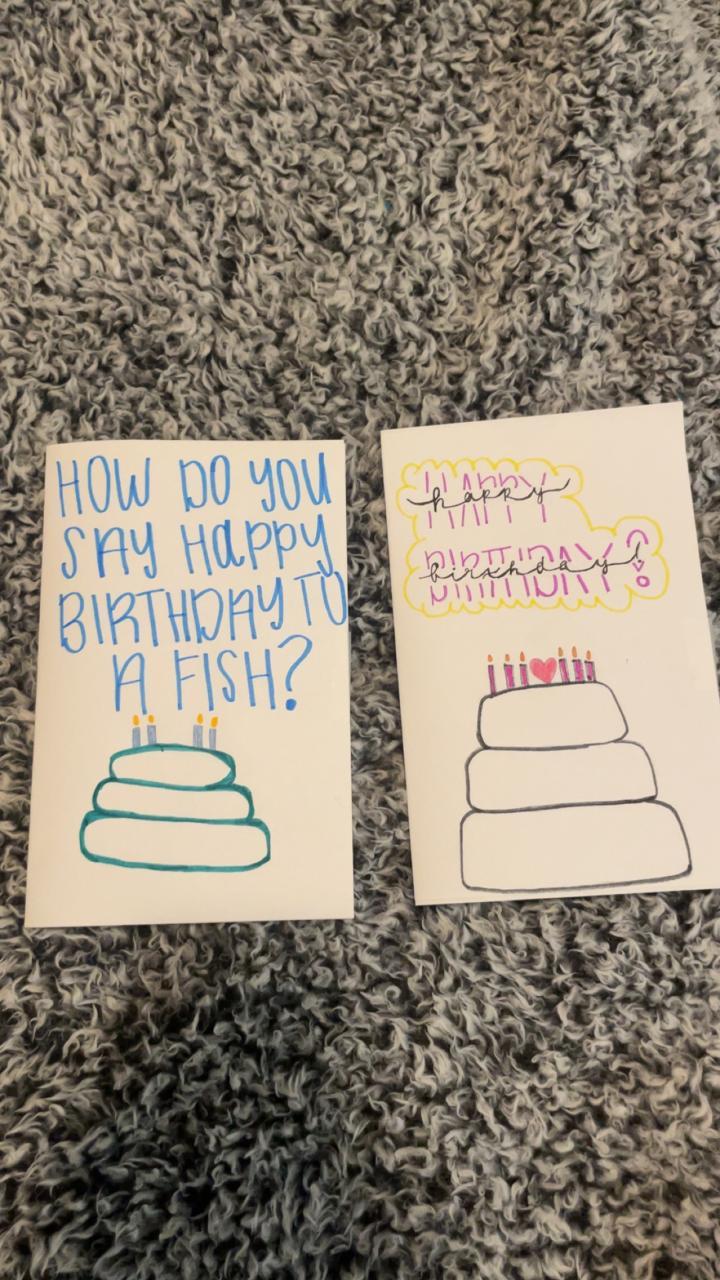 HOW DO YOU
SAY HAPPY
BIRTHDAY TO
A FISH?
HAPPY
happy
BIRTHDAY!
birthday!